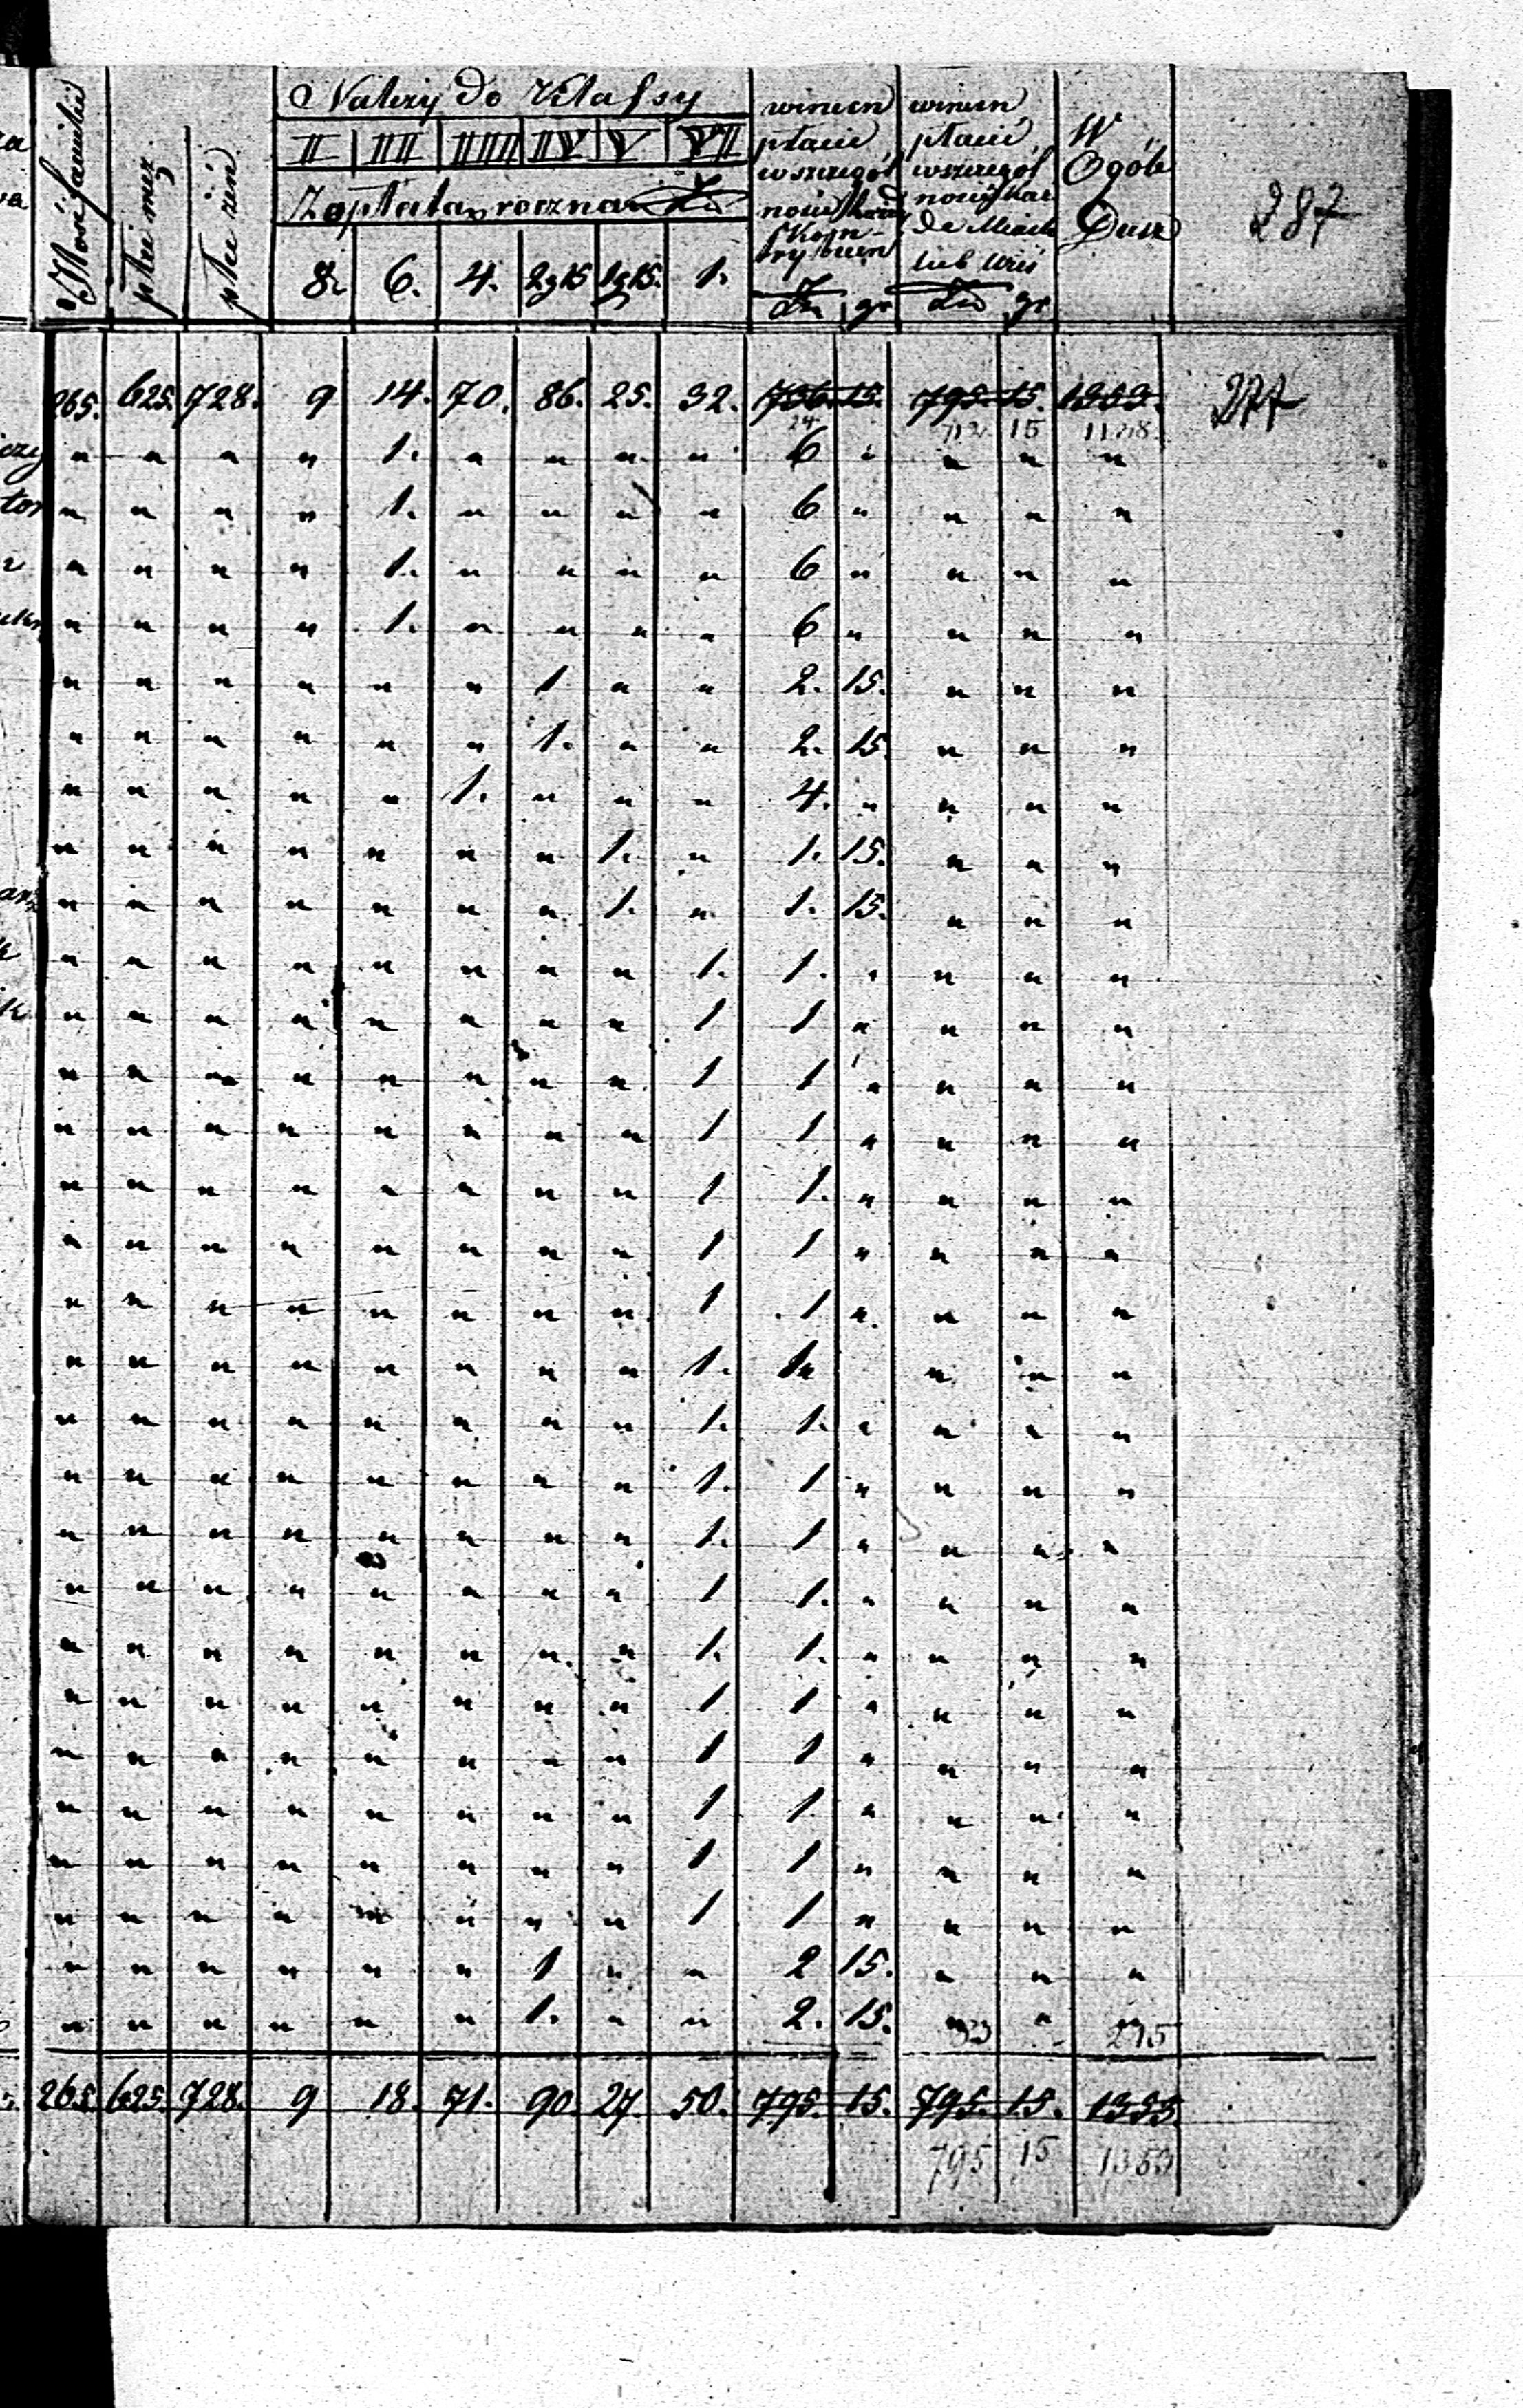 Ilość familii | płci męz. | płci żeń | Należy do Klassy | winien płacić wszczegól ności każdy kon- try buen | winien płacić wszczegól ności każ de Miasto lub Wieś | W Ogóle Dusz | 287
II | III | IIII | IV | V | VII
Zapłata roczna
8. | 6. | 4. | 2g15 | 1g15. | 1.
gr | gr
265. 625. 728. 9 14. 70. 86. 25. 32. 736. 15. 795. 15. 1353. 277
712 15
" " " " 1. " " " " 6 " " " "
" " " " 1. " " " " 6 " " " "
" " " " 1. " " " " 6 " " " "
" " " " 1. " " " " 6 " " " "
" " " " " " 1 " " 2. 15. " " "
" " " " " " 1. " " 2. 15 " " "
" " " " " 1. " " " 4. " " " "
" " " " " " " 1. " 1. 15. " " "
" " " " " " " 1. " 1. 15. " " "
" " " " " " " " 1. 1. " " " "
" " " " " " " " 1 1 " " " "
" " " " " " " " 1 1 " " " "
" " " " " " " " 1 1 " " " "
" " " " " " " " 1 1. " " " "
" " " " " " " " 1 1 " " " "
" " " " " " " " 1 1 " " " "
" " " " " " " " 1. 1 " " " "
" " " " " " " " 1. 1. " " " "
" " " " " " " " 1. 1 " " " "
" " " " " " " " 1. 1 " " " "
" " " " " " " " 1 1. " " " "
" " " " " " " " 1. 1. " " " "
" " " " " " " " 1 1 " " " "
" " " " " " " " 1 1 " " " "
" " " " " " " " 1 1. " " " "
" " " " " " " " 1 1 " " " "
" " " " " " " " 1 1 " " " "
" " " " " " 1 " " 2 15. " " "
" " " " " " 1. " " 2. 15. " " "
265. 625. 728. 9 18. 71. 90. 27. 50. 795. 15. 795. 15. 1353
795 15 1353